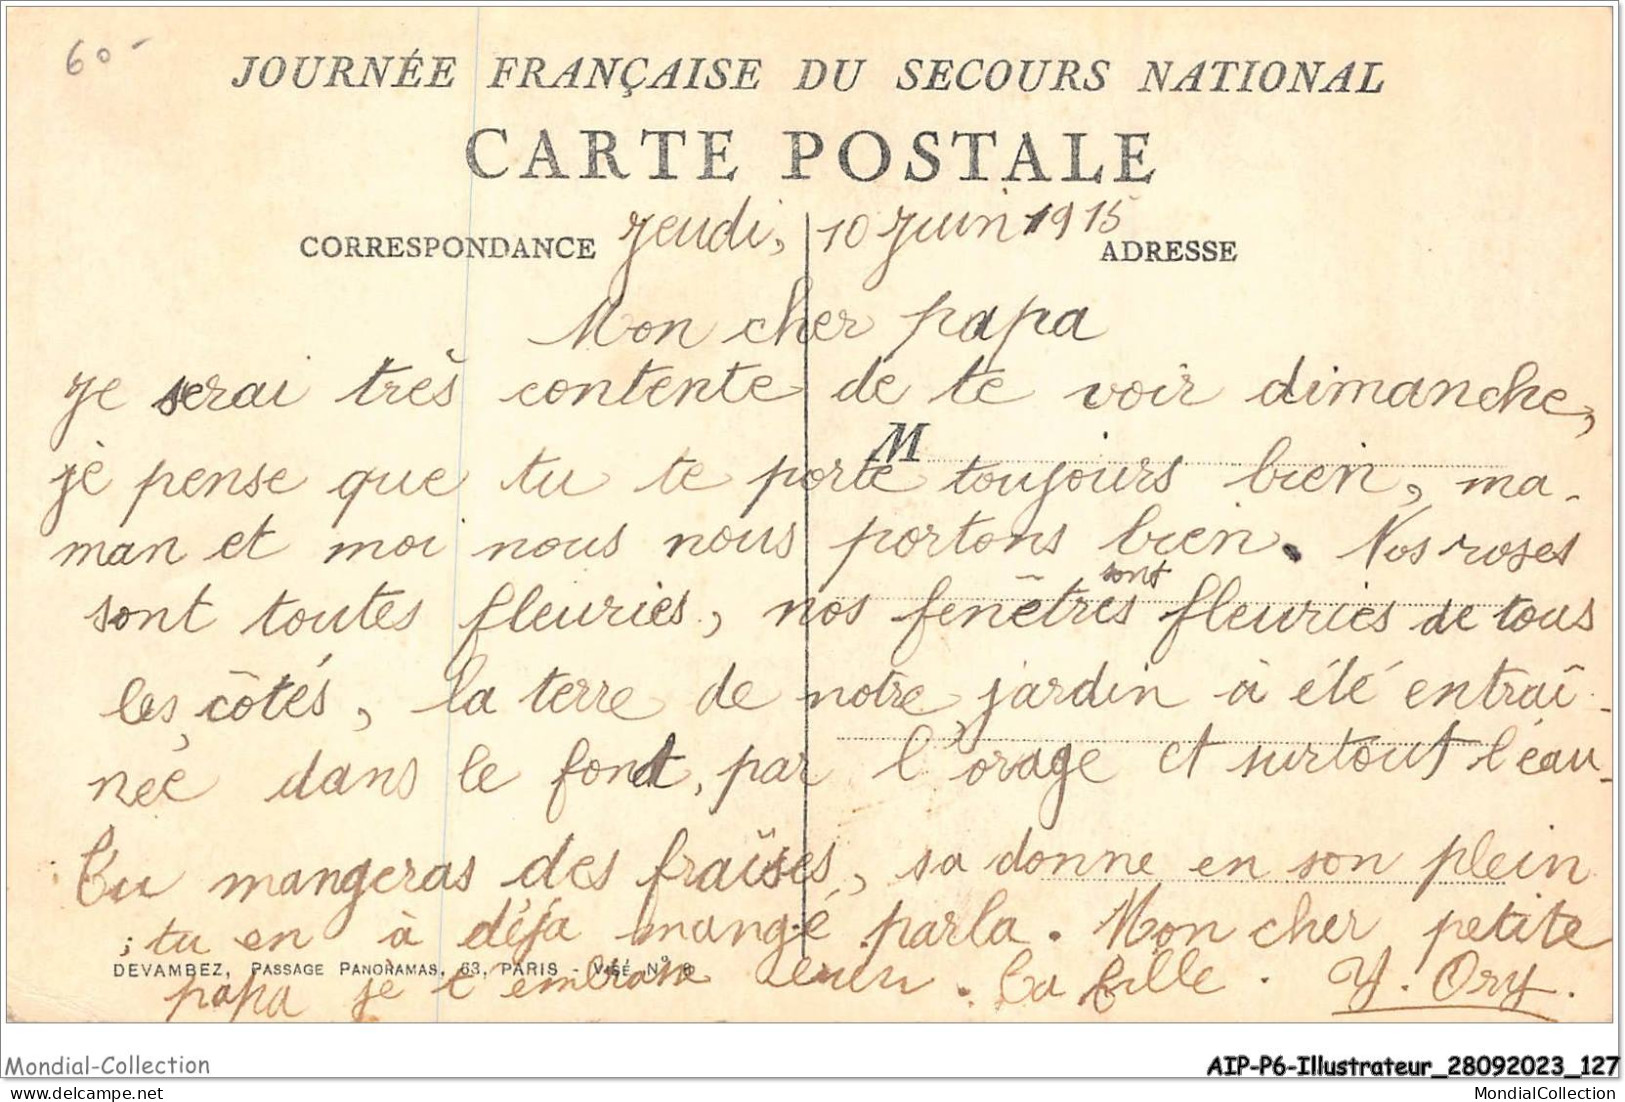 60-
JOURNÉE FRANÇAISE DU SECOURS NATIONAL
CARTE POSTALE
CORRESPONDANCE
Jeudi, 10 Juin 1915
ADRESSE
Mon cher papa
Je serai très contente de te voir dimanche,
M
je pense que tu te porte toujours bien, ma-
man et moi nous nous portons bien. Nos roses
sont toutes fleuries, nos fenêtres sont fleuries de tous
les côtés, la terre de notre jardin à été entraî-
née dans le font, par l'orage et surtout l'eau.
Tu mangeras des fraises, sa donne en son plein
; tu en à déja mangé parla. Mon cher petite
DEVAMBEZ, PASSAGE PANORAMAS, 63, PARIS - VISÉ Nº
papa je t'embrasse . Ta fille . Y. Ory.
Mondial-Collection
AIP-P6-Illustrateur_28092023_127
delcampe.net
MondialCollection